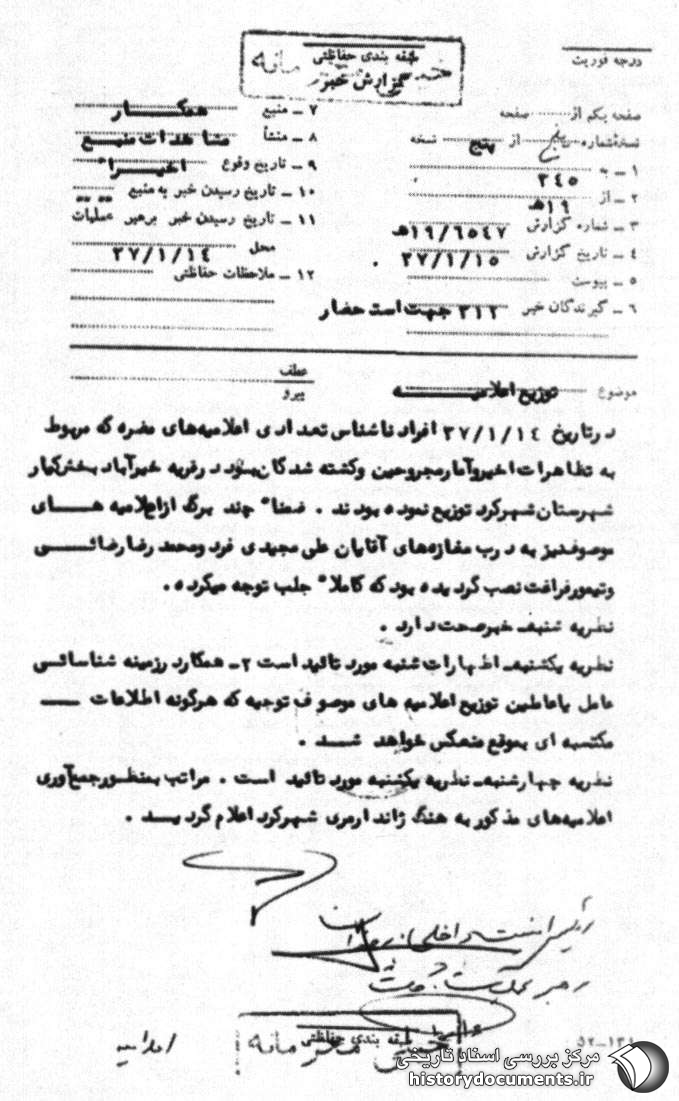 طبقه بندی حفاظتی
گزارش خبر
خیلی محرمانه
درجه فوریت
صفحه یکم از صفحه
نسخه شماره پنج از پنج نسخه
۱ ـ به ۳۴۵
۲ ـ از ۱۹ﻫ
۳ ـ شماره گزارش ۱۹/۶۵۴۷ﻫ
۴ ـ تاریخ گزارش ۳۷/۱/۱۵
۵ ـ پیوست
۶ ـ گیرندگان خبر ۳۱۲ جهت استحضار
۷ ـ منبع همکار
۸ ـ منشأ مشاهدات منبع
۹ ـ تاریخ وقوع اخیراً
۱۰ ـ تاریخ رسیدن خبر به منبع
۱۱ ـ تاریخ رسیدن خبر برهبر عملیات
محل ۳۷/۱/۱۴
۱۲ ـ ملاحظات حفاظتی
موضوع توزیع اعلامیه
عطف
پیرو
در تاریخ ۳۷/۱/۱۴ افراد ناشناس تعدادی اعلامیه‌های مضره که مربوط
به تظاهرات اخیر و آمار مجروحین و کشته شدگان بود در قریه خیرآباد بخش کیار
شهرستان شهرکرد توزیع نموده بودند . ضمناً چند برگ از اعلامیه هـای
موصوف نیز به درب مغازه‌های آقایان علی مجیدی فرد و محمد رضا رضائـی
و تیمور فراقت نصب گردیده بود که کاملاً جلب توجه میکرده .
نظریه شنبه ـ خبر صحت دارد .
نظریه یکشنبه ـ اظهارات شنبه مورد تائید است ۲ ـ همکار در زمینه شناسائی
عامل یا عاملین توزیع اعلامیه های موصوف توجیه که هرگونه اطلاعات ـ
مکتسبه ای بموقع منعکس خواهد شـد .
نظریه چهارشنبه ـ نظریه یکشنبه مورد تائید است . مراتب بمنظور جمع‌آوری
اعلامیه‌های مذکور به هنگ ژاندارمری شهرکرد اعلام گردیـد .
رئیس امنیت داخلی
رهبر عملیات
طبقه بندی حفاظتی
خیلی محرمانه
اعلامیه
۵۲ـ۱۳۴
مرکز بررسی اسناد تاریخی
historydocuments.ir